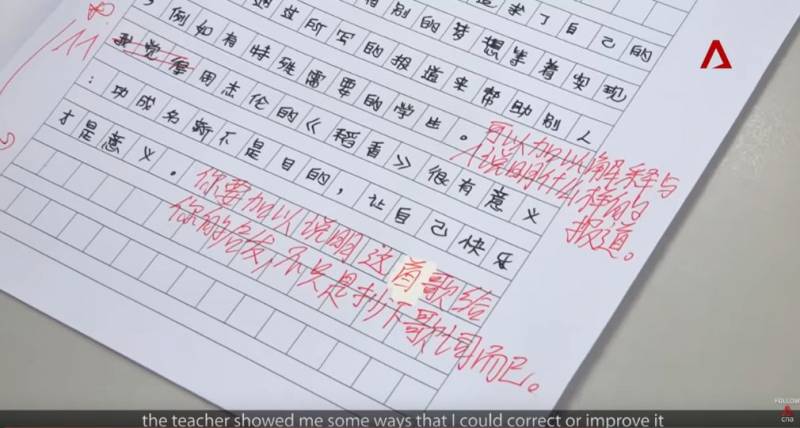 了自己的
的梦想
实现
所写的报道来帮助别人
，例如有特殊需要的学生。
可以加以解释与
说明什么样的
报道。
我觉得用杰伦的《稻香》很有意义
：功成名就不是目的，让自己快乐
才是意义。
你要加以说明这首歌给
你的启发，不只是抄下歌词而已。
11
FOLLOW
cna
the teacher showed me some ways that I could correct or improve it